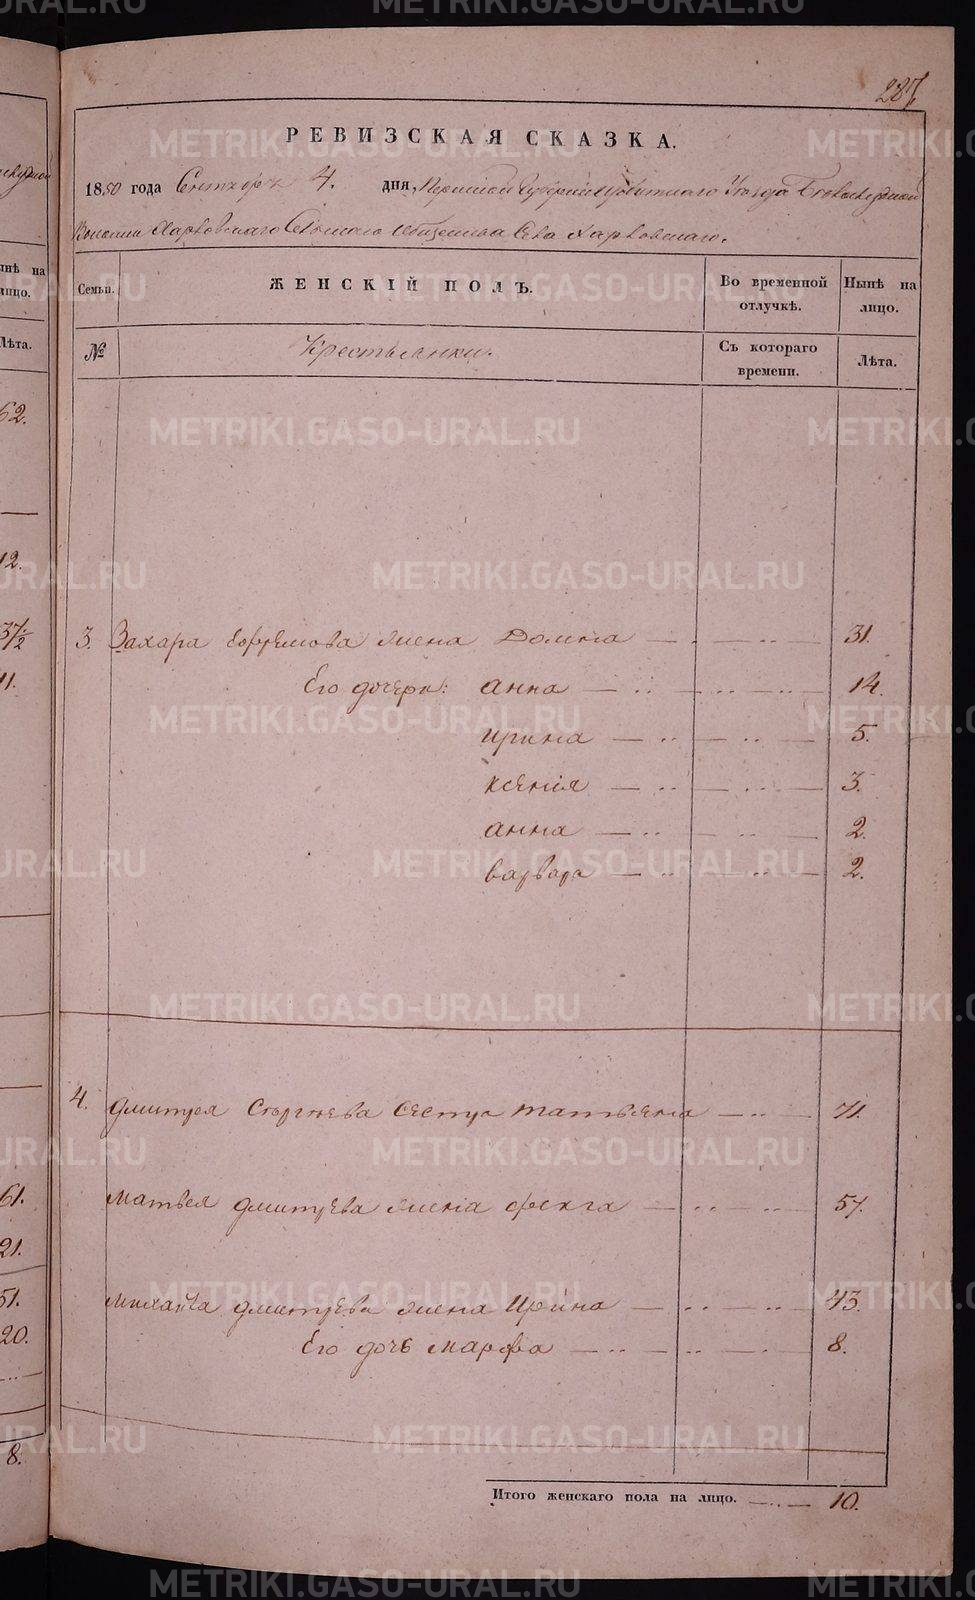 287
РЕВИЗСКАЯ СКАЗКА.
1850 года Сентября 4. дня, Пермской Губернии Ирбитскаго Уезда
Волости Харловскаго Сельскаго Общества Села Харловскаго.
Семьи. ЖЕНСКІЙ ПОЛЪ. Во временной отлучкѣ. Нынѣ на лицо.
№ Крестьянки. Съ котораго времени. Лѣта.
3. Захара Ефремова жена Домна 31.
Его дочери: Анна 14.
Ирина 5.
Ксенія 3.
Анна 2.
Варвара 2.
4. Дмитрея Сергеева Сестра Татьяна 71.
Матвея Дмитрева жена Фекла 57.
Михайла Дмитрева жена Ирина 43.
Его дочь Марфа 8.
Итого женскаго пола на лицо. 10.
нѣ на
лицо.
Лѣта.
62.
12.
37½
11.
61.
21.
51.
20.
8.
METRIKI.GASO-URAL.RU